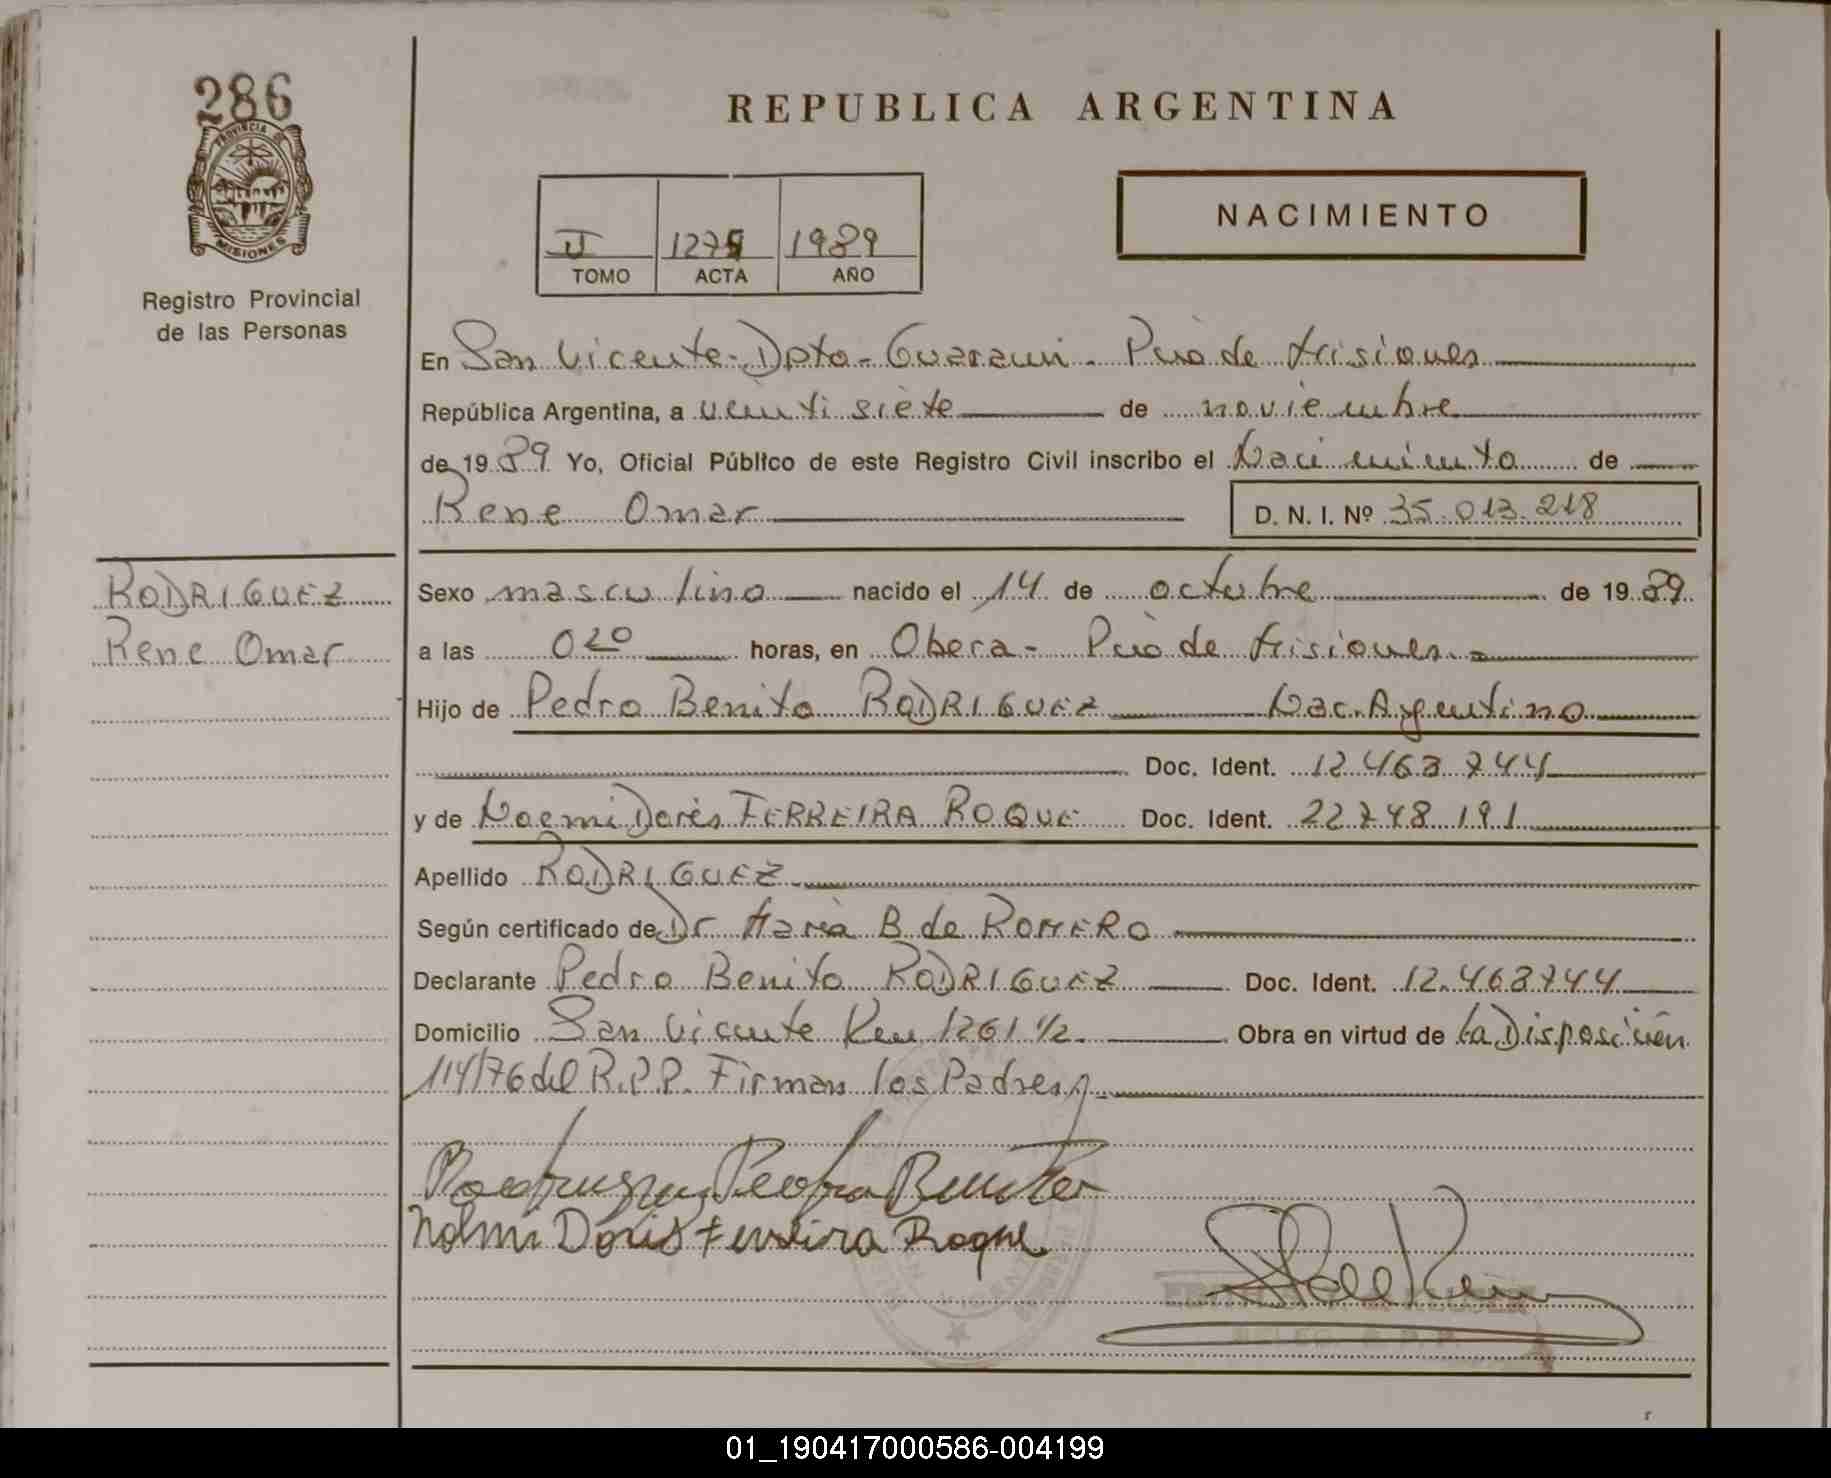 286
PROVINCIA DE
MISIONES
Registro Provincial
de las Personas
REPUBLICA ARGENTINA
II 1275 1989
TOMO ACTA AÑO
NACIMIENTO
En San Vicente - Dpto - Guarani - Pcia de Misiones
República Argentina, a veintisiete de noviembre
de 1989 Yo, Oficial Público de este Registro Civil inscribo el Nacimiento de
Rene Omar D. N. I. Nº 35.013.218
RODRIGUEZ
Rene Omar
Sexo masculino nacido el 14 de octubre de 1989
a las 020 horas, en Obera - Pcia de Misiones
Hijo de Pedro Benito RODRIGUEZ Nac. Argentino
Doc. Ident. 12.463.744
y de Noemi Doris FERREIRA ROQUE Doc. Ident. 22.748.191
Apellido RODRIGUEZ
Según certificado de Dr Maria B de ROMERO
Declarante Pedro Benito RODRIGUEZ Doc. Ident. 12.463744
Domicilio San Vicente Km 1261 1/2 Obra en virtud de La Disposición
114/76 del R.P.P. Firman los Padres
Rodriguez Pedro Benito
Noemi Doris Ferreira Roque
01_190417000586-004199